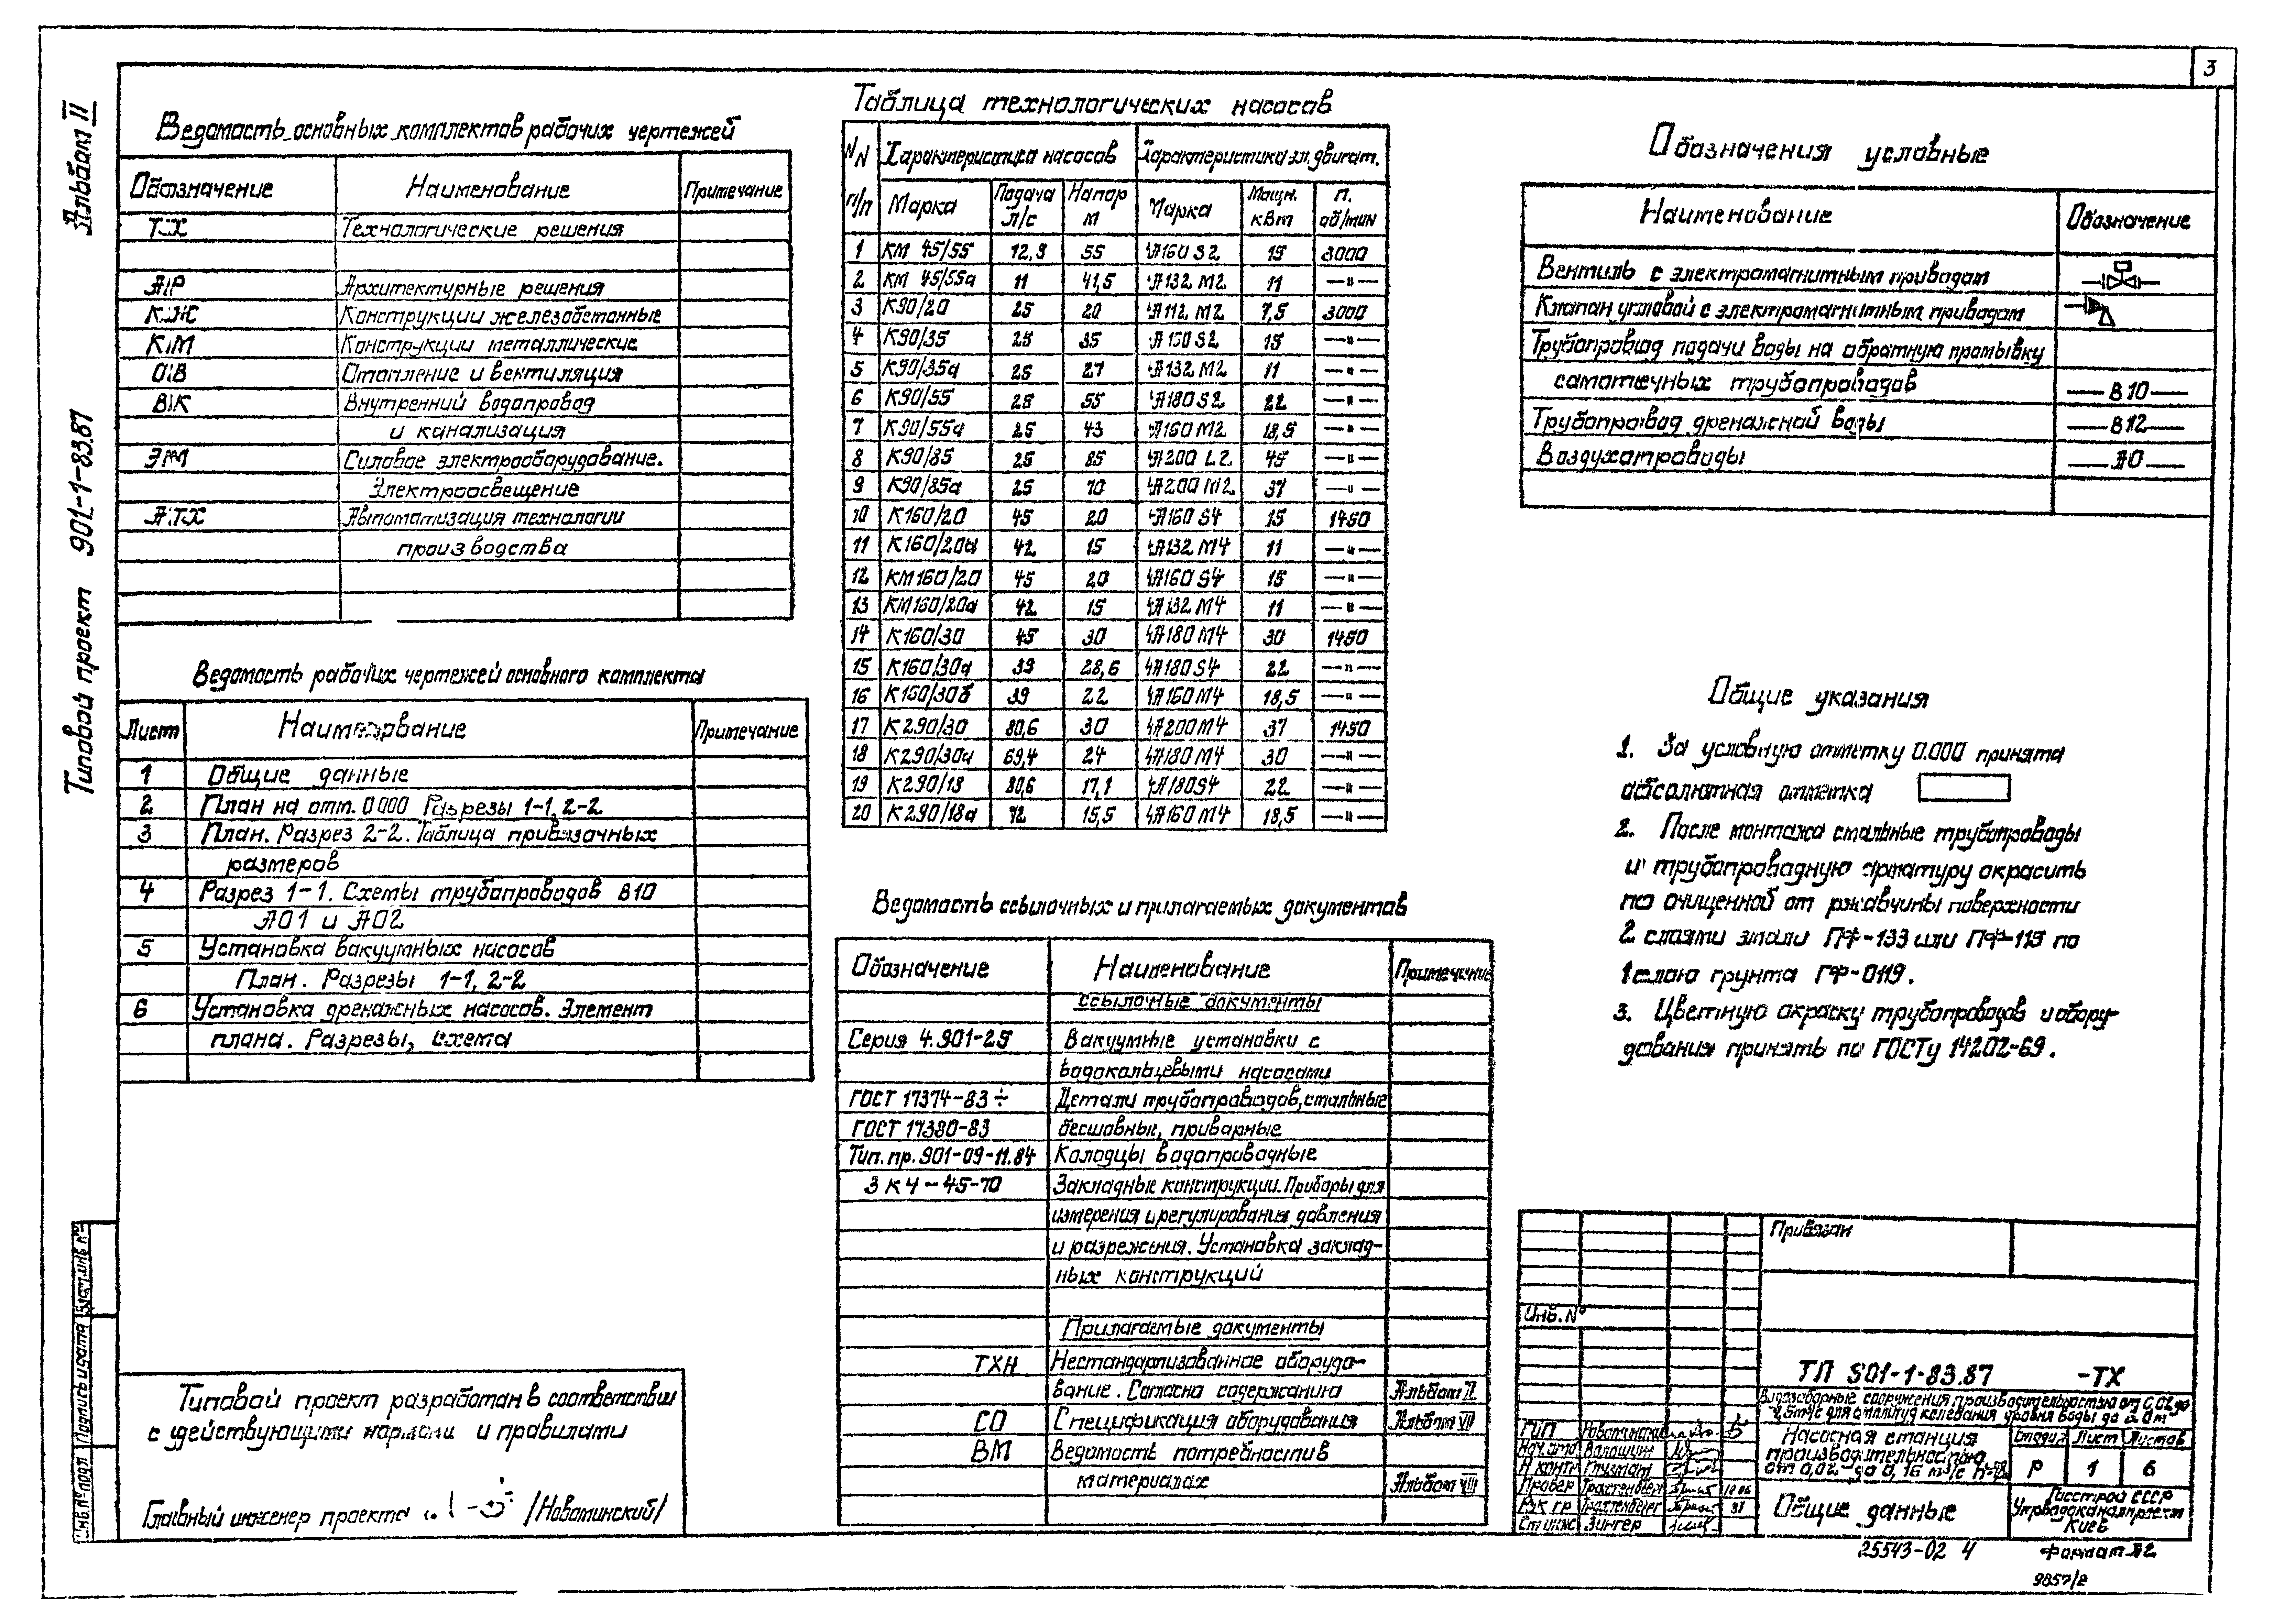 3
Альбом II
Типовой проект 901-1-83.87
Ведомость основных комплектов рабочих чертежей
Обозначение Наименование Примечание
ТХ Технологические решения
АР Архитектурные решения
КЖ Конструкции железобетонные
КМ Конструкции металлические
ОВ Отопление и вентиляция
ВК Внутренний водопровод
и канализация
ЭМ Силовое электрооборудование.
Электроосвещение
АТХ Автоматизация технологии
производства
Ведомость рабочих чертежей основного комплекта
Лист Наименование Примечание
1 Общие данные
2 План на отм. 0.000 Разрезы 1-1, 2-2
3 План. Разрез 2-2. Таблица привязочных
размеров
4 Разрез 1-1. Схемы трубопроводов В10
А01 и А02
5 Установка вакуумных насосов
План. Разрезы 1-1, 2-2
6 Установка дренажных насосов. Элемент
плана. Разрезы, схема
Типовой проект разработан в соответствии
с действующими нормами и правилами
Главный инженер проекта /Новоминский/
Таблица технологических насосов
NN п/п Характеристика насосов Характеристика эл. двигат.
Марка Подача л/с Напор м Марка Мощн. кВт п. об/мин
1 КМ 45/55 12,5 55 4А160S2 15 3000
2 КМ 45/55а 11 41,5 4А132М2 11 —"—
3 К90/20 25 20 4А112М2 7,5 3000
4 К90/35 25 35 4А160S2 15 —"—
5 К90/35а 25 27 4А132М2 11 —"—
6 К90/55 25 55 4А180S2 22 —"—
7 К90/55а 25 43 4А160М2 18,5 —"—
8 К90/85 25 85 4А200L2 45 —"—
9 К90/85а 25 70 4А200М2 37 —"—
10 К160/20 45 20 4А160S4 15 1450
11 К160/20а 42 15 4А132М4 11 —"—
12 КМ160/20 45 20 4А160S4 15 —"—
13 КМ160/20а 42 15 4А132М4 11 —"—
14 К160/30 45 30 4А180М4 30 1450
15 К160/30а 39 28,6 4А180S4 22 —"—
16 К160/30б 39 22 4А160М4 18,5 —"—
17 К290/30 80,6 30 4А200М4 37 1450
18 К290/30а 69,4 24 4А180М4 30 —"—
19 К290/18 80,6 17,1 4А180S4 22 —"—
20 К290/18а 72 15,5 4А160М4 18,5 —"—
Ведомость ссылочных и прилагаемых документов
Обозначение Наименование Примечание
Ссылочные документы
Серия 4.901-25 Вакуумные установки с
водокольцевыми насосами
ГОСТ 17374-83 ÷ Детали трубопроводов, стальные
ГОСТ 17380-83 бесшовные, приварные
Тип. пр. 901-09-11.84 Колодцы водопроводные
ЗК4-45-70 Закладные конструкции. Приборы для
измерения и регулирования давления
и разрежения. Установка заклад-
ных конструкций
Прилагаемые документы
ТХН Нестандартизованное оборудо-
вание. Согласно содержанию Альбом II
СО Спецификация оборудования Альбом VII
ВМ Ведомость потребностив
материалах Альбом VIII
Обозначения условные
Наименование Обозначение
Вентиль с электромагнитным приводом
Клапан угловой с электромагнитным приводом
Трубопровод подачи воды на обратную промывку
самотечных трубопроводов —В10—
Трубопровод дренажной воды —В12—
Воздухопроводы —А0—
Общие указания
1. За условную отметку 0.000 принята
абсолютная отметка
2. После монтажа стальные трубопроводы
и трубопроводную арматуру окрасить
по очищенной от ржавчины поверхности
2 слоями эмали ПФ-133 или ПФ-115 по
1 слою грунта ГФ-0119.
3. Цветную окраску трубопроводов и обору-
дования принять по ГОСТу 14202-69.
Привязан
Инв. N°
ТП 901-1-83.87 -ТХ
Водозаборные сооружения производительностью от 0,02 до
для амплитуд колебания уровня воды до
Насосная станция
производительностью
от 0,02 до 0,16 м³/с
Стадия Лист Листов
Р 1 6
Общие данные
Госстрой СССР
Укрводоканалпроект
Киев
ГИП Новоминский
Нач. отд Волошин
Н. контр Глузман
Провер Трахтенберг
Рук. гр Трахтенберг
Ст. инж Зингер
Инв. № подл Подпись и дата Взам. инв. №
25543-02 4 Формат А2
9857/2